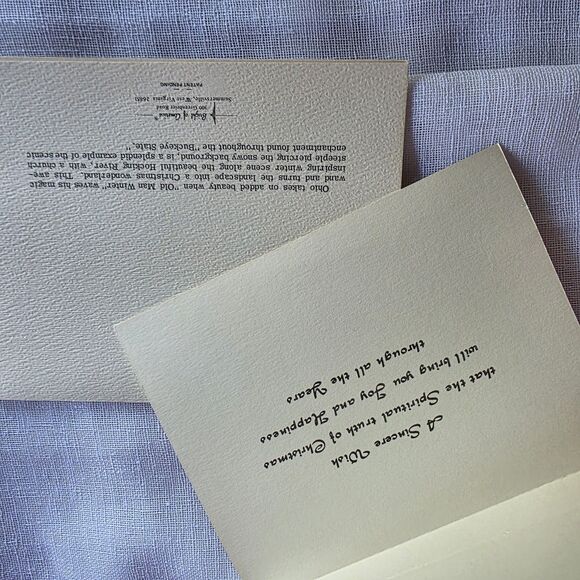 Ohio takes on added beauty when "Old Man Winter" waves his magic
wand and turns the landscape into a Christmas wonderland. This awe-
inspiring winter scene along the beautiful Hocking River, with a church
steeple piercing the snowy background, is a splendid example of the scenic
enchantment found throughout the "Buckeye State."
Bright of America®
300 Greenbrier Road
Summersville, West Virginia 26651
PATENT PENDING
A Sincere Wish
that the Spiritual truth of Christmas
will bring you Joy and Happiness
through all the Years